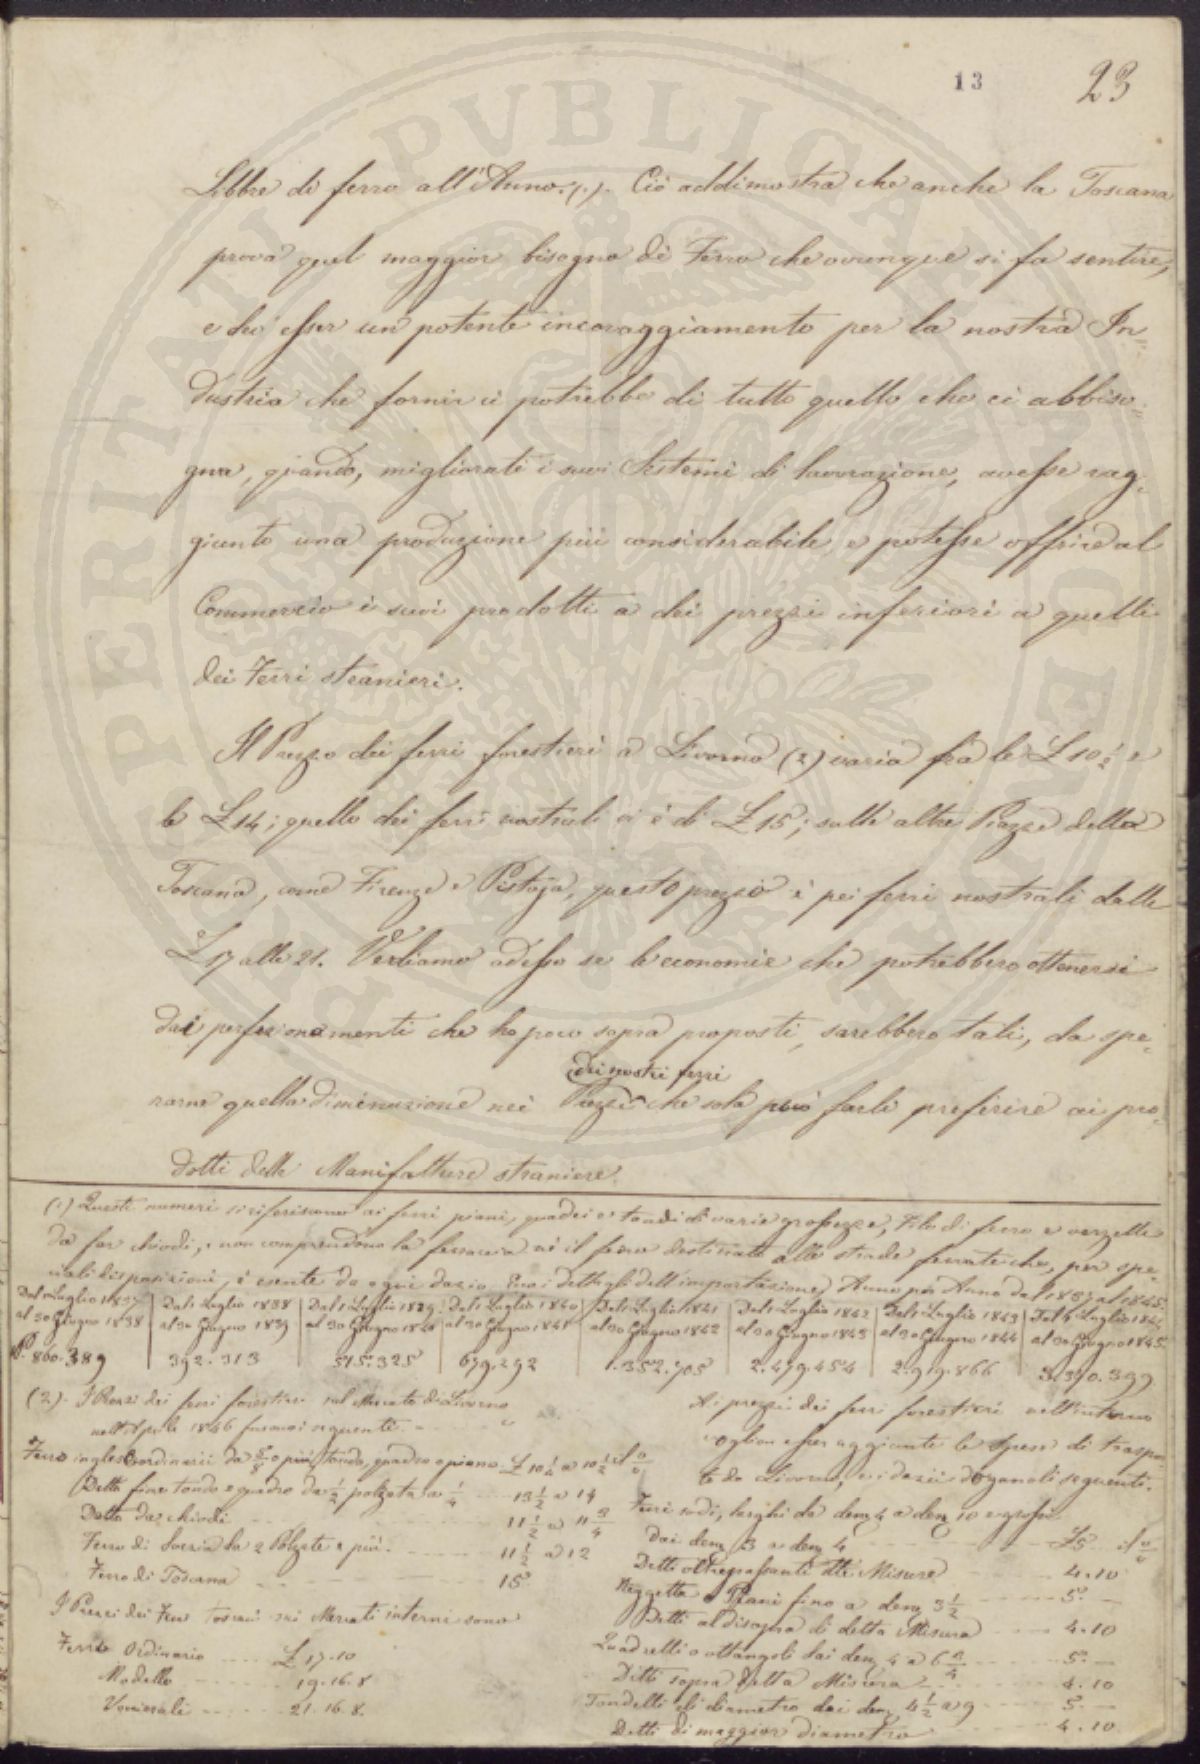 13
23
Libbre di ferro all'Anno. (1). Ciò addimostra che anche la Toscana
prova quel maggior bisogno di Ferro che ovunque si fa sentire,
e dev'esser un potente incoraggiamento per la nostra In=
dustria che fornir ci potrebbe di tutto quello che ci abbiso=
gna, quando, migliorati i suoi Sistemi di lavorazione, avesse rag=
giunto una produzione più considerabile e potesse offrire al
Commercio i suoi prodotti a dei prezzi inferiori a quelli
dei Ferri stranieri.
Il Prezzo dei ferri forestieri a Livorno (2) varia fra le £ 10 1/2 e
le £ 14; quello dei ferri nostrali vi è di £ 15; sulle altre Piazze della
Toscana, come Firenze e Pistoja, questo prezzo è pei ferri nostrali dalle
£ 17 alle 21. Vediamo adesso se le economie che potrebbero ottenersi
dai perfezionamenti che ho poco sopra proposti, sarebbero tali, da spe=
dei nostri ferri
rarne quella diminuzione nei Prezzi che sola può farli preferire ai pro=
dotti delle Manifatture straniere.
(1) Questi numeri si riferiscono ai ferri piani, quadri e tondi di varie grossezze, Filo di ferro e verzella
da far chiodi, e non comprendono la ferraccia nè il ferro destinato alle strade ferrate che, per spe=
ciali disposizioni, è esente da ogni dazio. Ecco i dettagli dell'importazione Anno per Anno dal 1837 al 1845.
Dal 1 Luglio 1837 | Dal 1 Luglio 1838 | Dal 1 Luglio 1839 | Dal 1 Luglio 1840 | Dal 1 Luglio 1841 | Dal 1 Luglio 1842 | Dal 1 Luglio 1843 | Dal 1 Luglio 1844
al 30 Giugno 1838 | al 30 Giugno 1839 | al 30 Giugno 1840 | al 30 Giugno 1841 | al 30 Giugno 1842 | al 30 Giugno 1843 | al 30 Giugno 1844 | al 30 Giugno 1845.
860.389 | 392.313 | 515.325 | 679.292 | 1.352.705 | 2.479.454 | 2.919.866 | 3.370.399
(2) I Prezzi dei ferri forestieri sul Mercato di Livorno
nell'Aprile 1846 furono i seguenti.
Ferro inglese ordinario da 5/8 o più, tondo, quadro o piano £ 10 1/4 a 10 1/2 il %
Detto fine tondo e quadro da 1/2 polzata a 1/4 13 1/2 a 14
Detto da chiodi 11 1/2 a 11 3/4
Ferro di Svezia da 2 Polzate e più 11 1/2 a 12
Ferro di Toscana 15
I Prezzi dei Ferri Toscani sui Mercati interni sono
Ferro Ordinario £ 17.10
Modello 19.16.8
Vomerali 21.16.8.
Ai prezzi dei ferri forestieri nell'interno
voglion esser aggiunte le spese di traspor
to da Livorno, e i dazii doganali seguenti.
Ferri sodi, larghi da den. 4 a den. 10 e grossi
dai den. 3 a den. 4 £ 5 il %
Detti oltrepassanti dette Misure 4.10
Reggetta e Piani fino a den. 3 1/2 5.
Detti al disopra di detta Misura 4.10
Quadretti o ottangoli dai den. 4 a 6 5.
Detti sopra detta Misura 4.10
Tondelli di diametro dai den. 4 1/2 a 9 5.
Detti di maggior diametro 4.10
PERITATI PUBLICAE